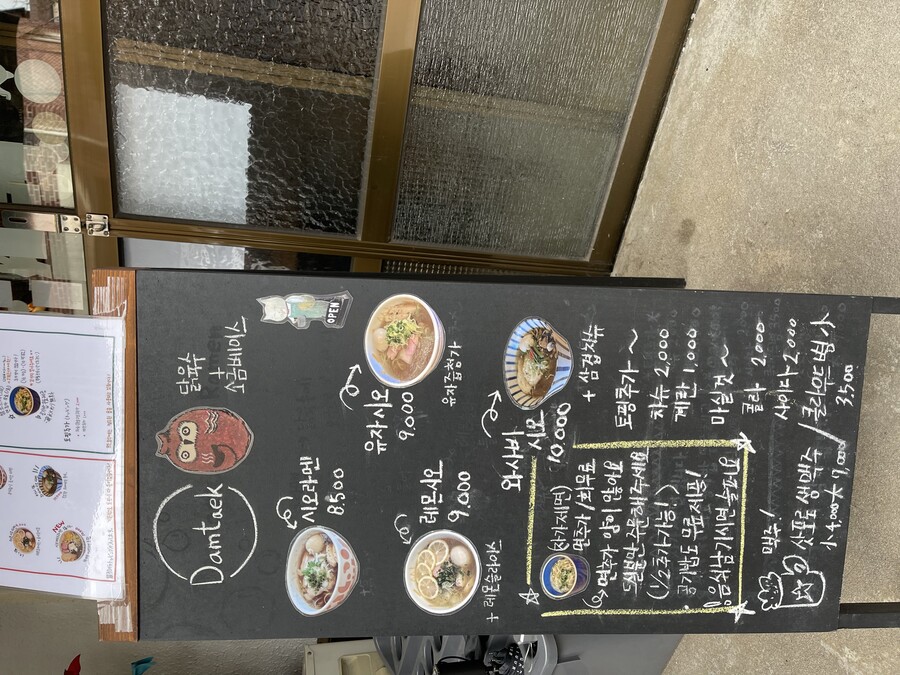 NEW
토핑추가
Damtaek
닭육수
+
소금베이스
OPEN
시오라멘
8.500
유자시오
9.000
유자즙첨가
레몬시오
9.000
+ 레몬슬라이스
와사비
시오
10.000
+ 삼겹차슈
(자가제면)
면추가 / 1회무료
면추가 양이 많아요
드실분만 주문해주세요
(1/2추가가능!)
공기밥도 무료제공!
!음식남기시면 슬퍼요
토핑추가 ~
차슈 2,000
계란 1,000
마실것 ~
콜라 2,000
사이다 2,000
맥주!
삿포로 생맥주
小 4,000 大 7,000
클라우드 병 小
3.500